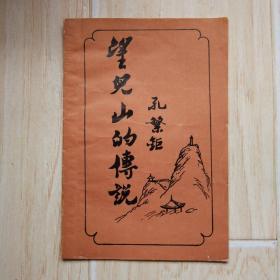 望兒山的傳説
孔繁鉅